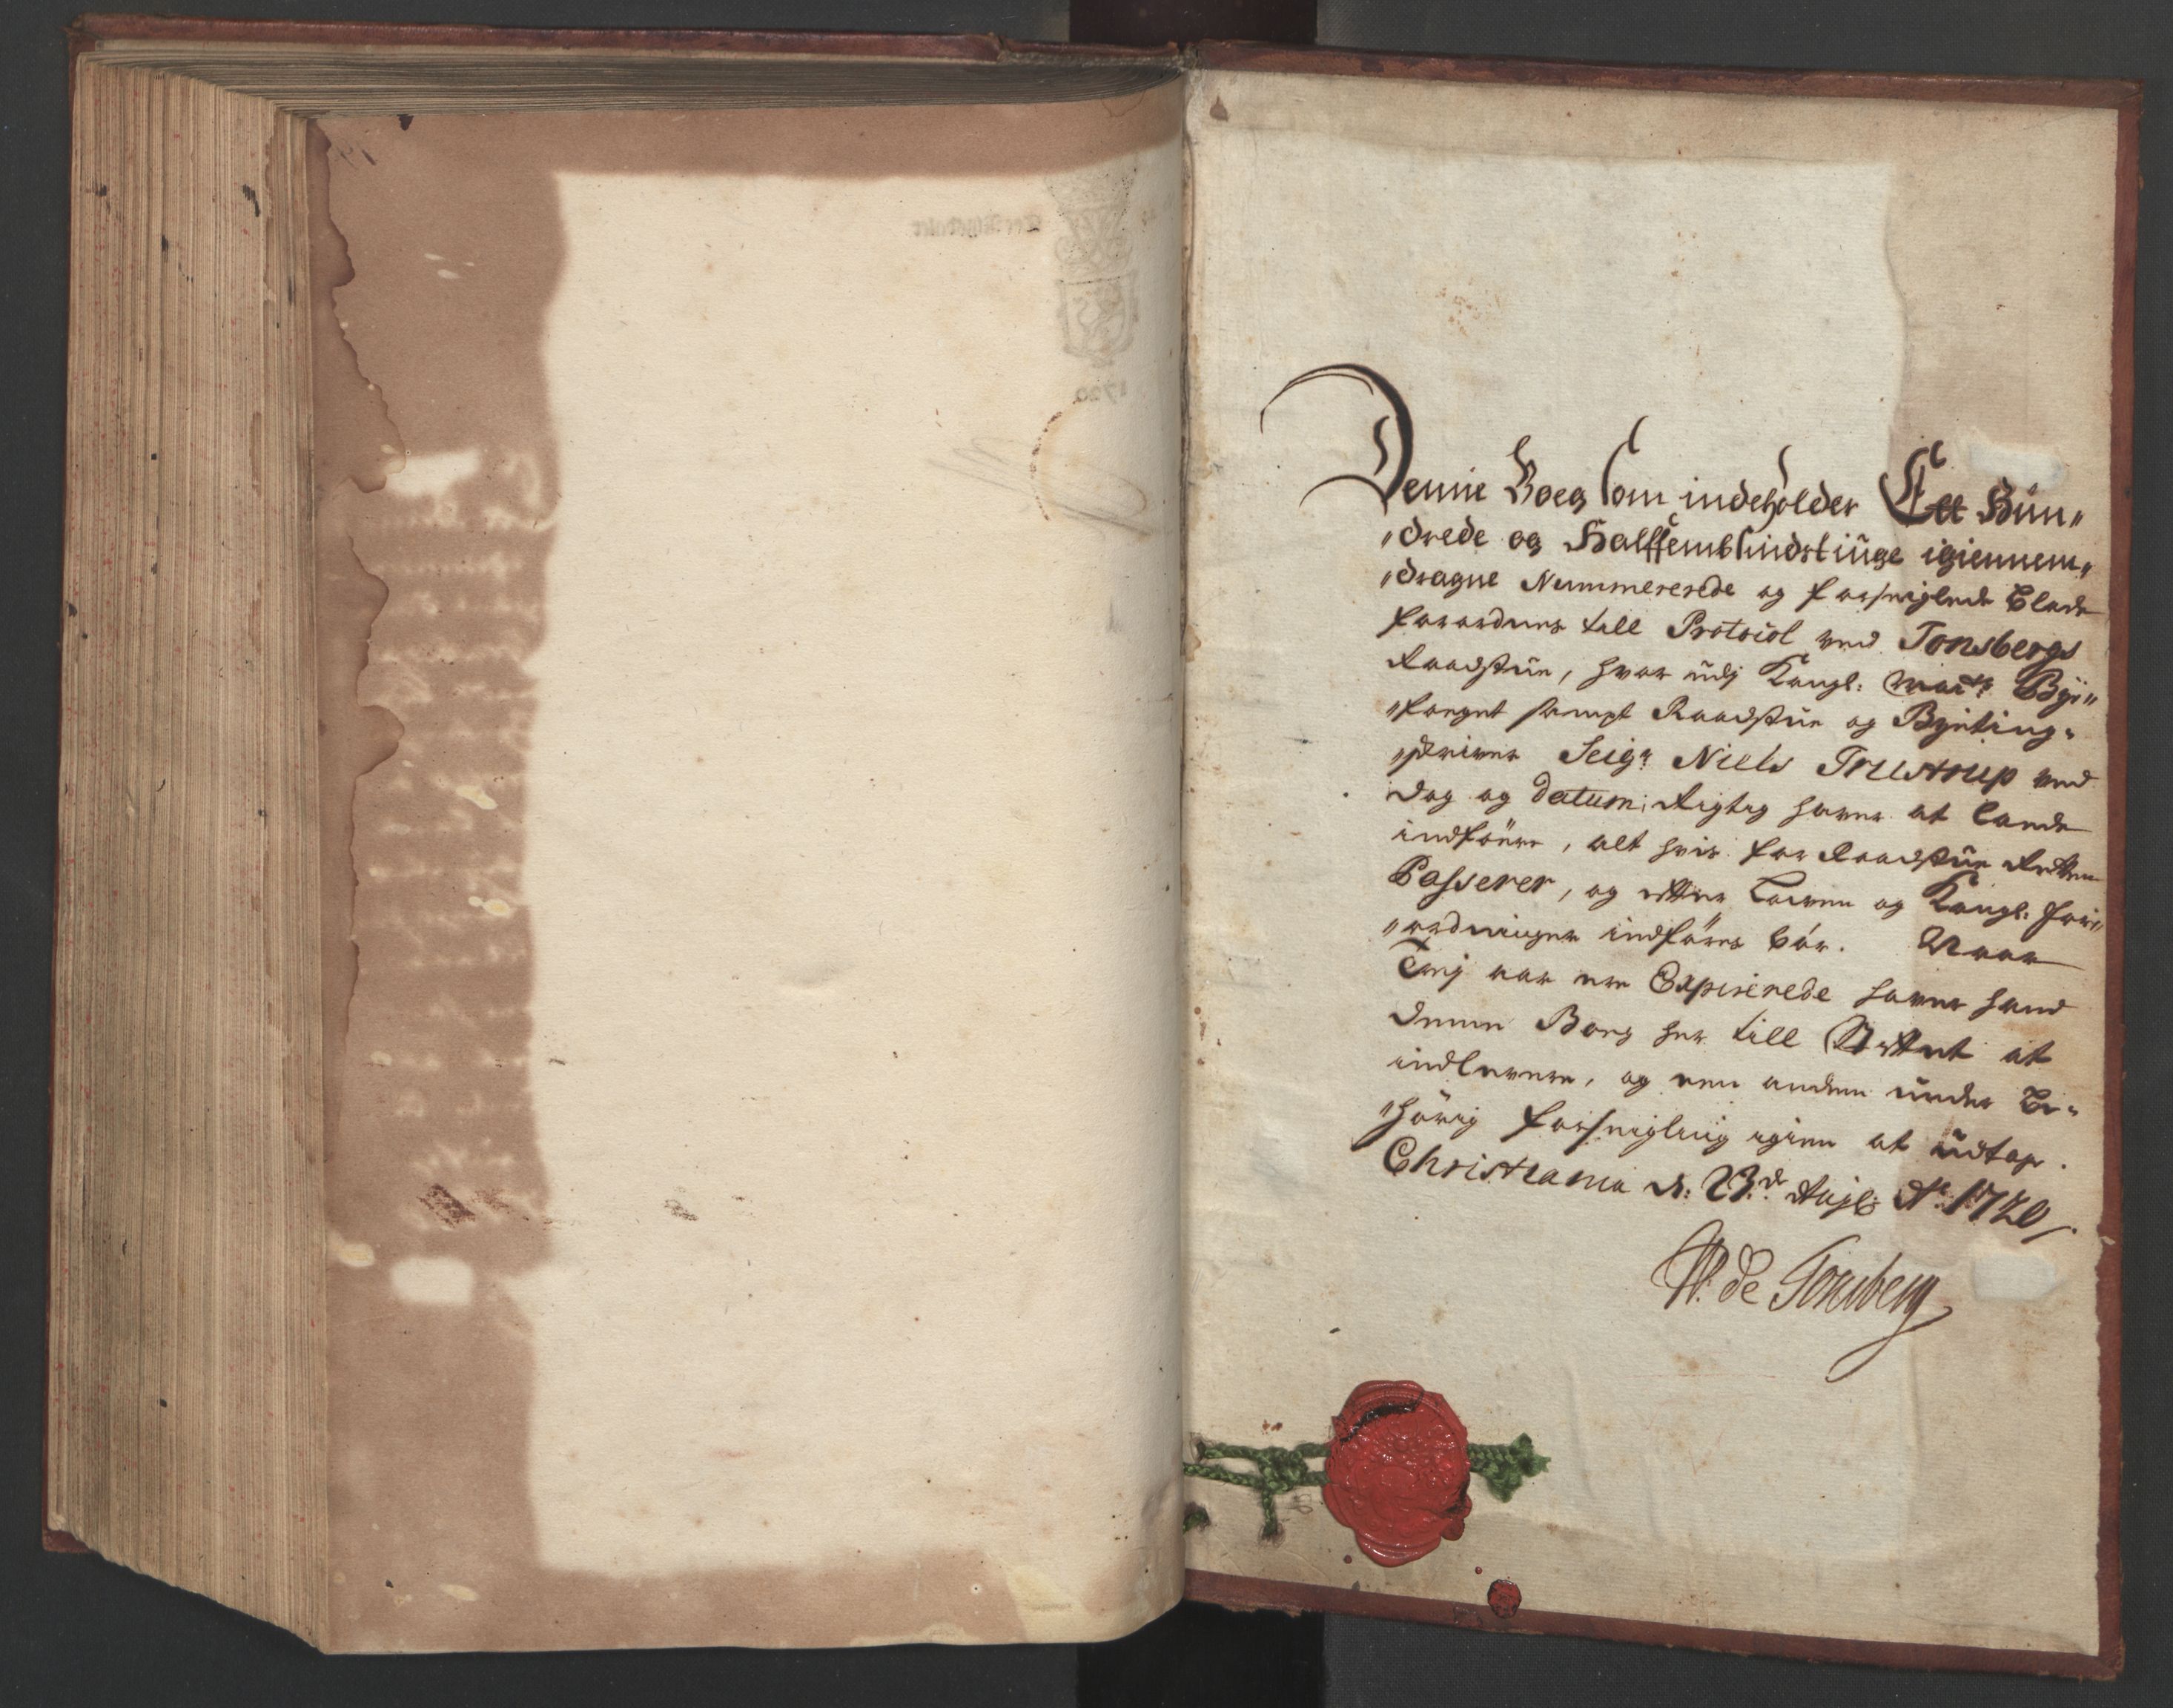 1720
Denne Boeg som indeholder Ett Hun„
„drede og Halffembsindstiuge igiennem„
„dragne Nummererede og forseiglede Blade
forordnes till Protocol ved Tonsbergs
Raadstue, hvor udj Kongl: May:ts Bye„
„foeget sampt Raadstue og Byeting„
„skriver Seigr Niels Trustrup ved
dag og datum, Rigtig haver at lade
indføere, alt hvis for Raadstue Retten
Passerer, og efter Lowen og Kongl: For„
„ordninger indføres bør. Naar
Trej aar ere Expirerede haver hand
denne Boeg her till Rettet at
indlevere, og een anden under Be„
„hørig forseigling igien at udtage.
Christiania d: 23de Aug: Ao 1720.
W. de Tonsberg